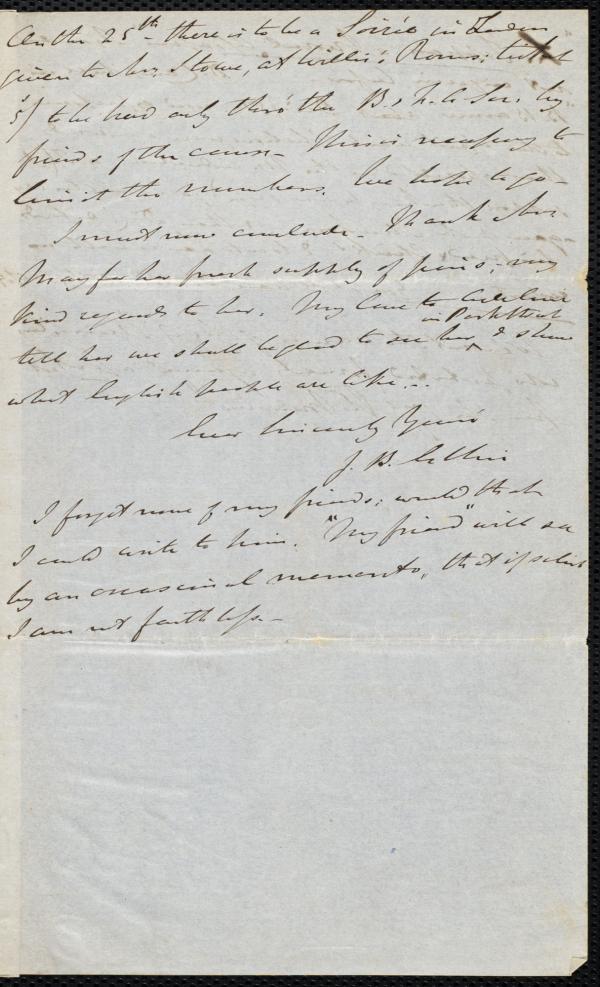 On the 25th there is to be a Soirée in London
given to Mrs. Stowe, at Willis's Rooms; tickets
5/ to be had only thro' the B. & F. A. Soc. by
friends of the cause. This is necessary to
limit the numbers. We hope to go.
I must now conclude. Thank Mrs
May for her fresh supply of pens; my
kind regards to her. My love to Adeline
in Park Street
tell her we shall be glad to see her, & show
what English people are like...
Ever Sincerely Yours
J. B. Estlin
I forget none of my friends; would that
I could write to him. "My friend" will see
by an occasional memento, that if silent
I am not faithless.